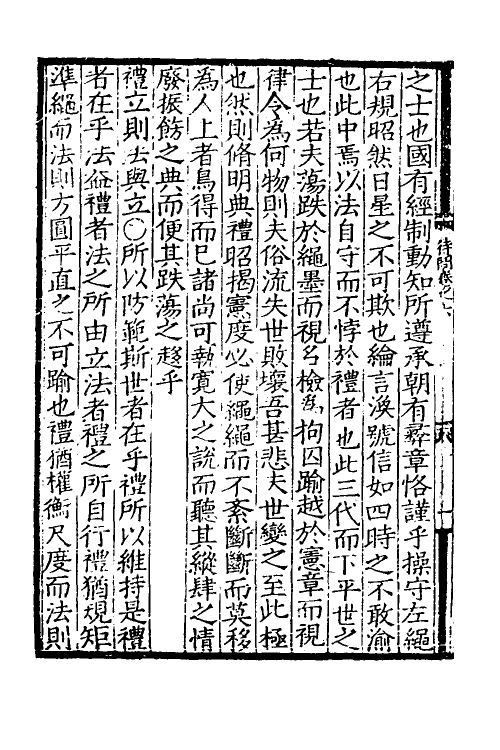 之士也國有經制動知所遵承朝有彞章恪謹乎操守左繩
右規昭然日星之不可欺也綸言渙號信如四時之不敢渝
也此中焉以法自守而不悖於禮者也此三代而下平世之
士也若夫蕩跌於繩墨而視名檢為拘囚踰越於憲章而視
律令為何物則夫俗流失世敗壞吾甚悲夫世變之至此極
也然則脩明典禮昭揭憲度必使繩繩而不紊斷斷而莫移
為人上者烏得而已諸尚可執寛大之說而聽其縱肆之情
廢振飭之典而便其跌蕩之趍乎
禮立則法與立〇所以防範斯世者在乎禮所以維持是禮
者在乎法益禮者法之所由立法者禮之所自行禮猶規矩
準繩而法則方圓平直之不可踰也禮猶權衡尺度而法則
待問卷之六